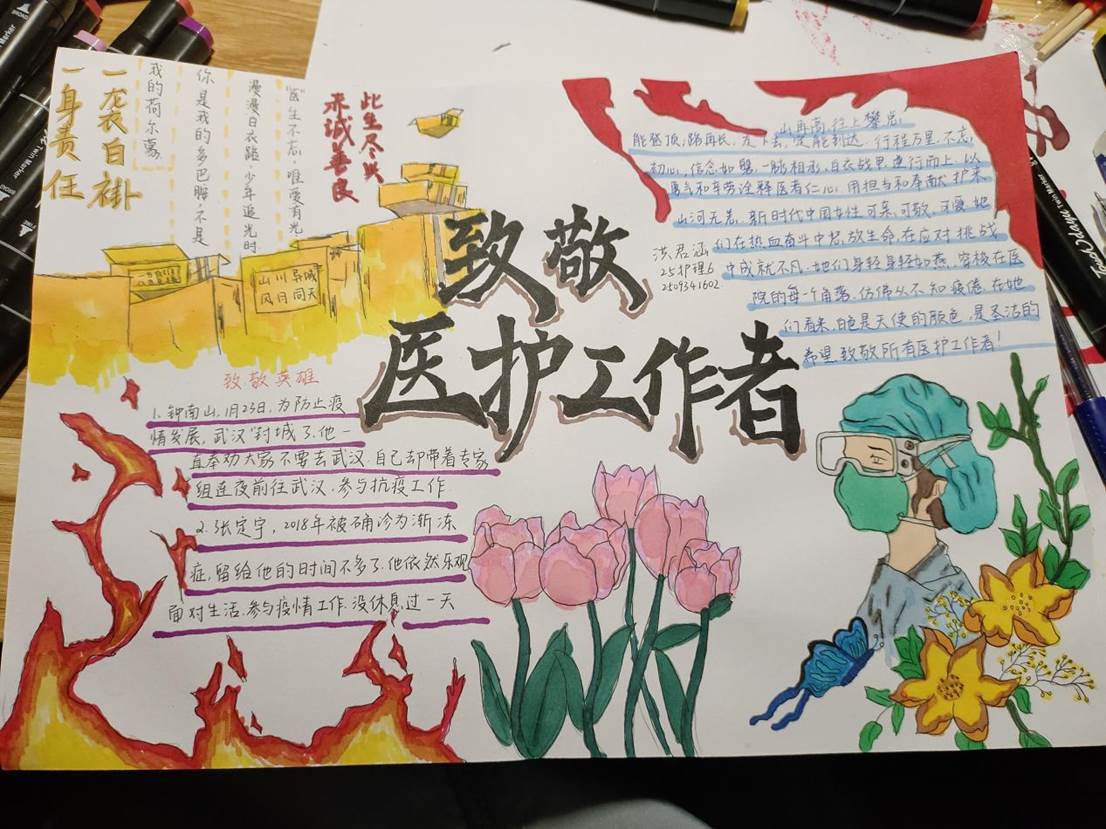 一袭白褂
一身责任
我的荷尔蒙
你是我的多巴胺，不是
漫漫白衣路，少年追光时
"医"生不忘，唯爱有光
此生尽兴
赤诚善良
山川异域
风月同天
致敬
医护工作者
洪君涵
25护理6
2509341602
山再高，往上攀，总
能登顶；路再长，走下去，定能到达。行程万里，不忘
初心，信念如磐，一脉相承，白衣战甲，逆行而上，以
勇气和辛劳诠释医者仁心，用担当和奉献护来
山河无恙，新时代中国女性可亲、可敬、可爱，她
们在热血奋斗中绽放生命，在应对挑战
中成就不凡。她们身轻身轻如燕，穿梭在医
院的每一个角落，仿佛从不知疲倦，在她
们看来，白色是天使的颜色，是圣洁的
希望，致敬所有医护工作者！
致敬英雄
1、钟南山，1月23日，为防止疫
情发展，武汉"封城"了，他一
直奉劝大家不要去武汉，自己却带着专家
组连夜前往武汉，参与抗疫工作
2、张定宇，2018年被确诊为渐冻
症，留给他的时间不多了，他依然乐观
面对生活，参与疫情工作，没休息过一天